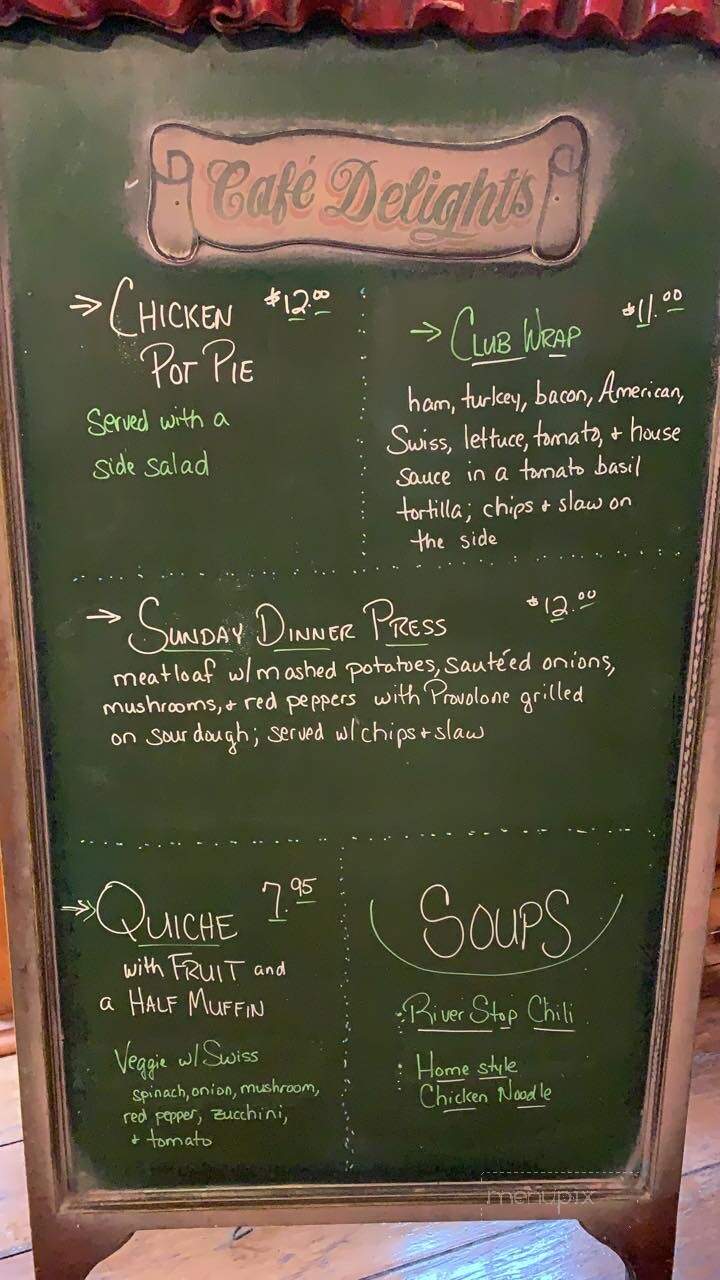 Café Delights
→ CHICKEN $12.00
POT PIE
Served with a
side salad
→ CLUB WRAP $11.00
ham, turkey, bacon, American,
Swiss, lettuce, tomato, + house
sauce in a tomato basil
tortilla; chips + slaw on
the side
→ SUNDAY DINNER PRESS $12.00
meatloaf w/ mashed potatoes, sautéed onions,
mushrooms, + red peppers with Provolone grilled
on sourdough; served w/ chips + slaw
→ QUICHE 7.95
with FRUIT and
a HALF MUFFIN
Veggie w/ Swiss
spinach, onion, mushroom,
red pepper, zucchini,
+ tomato
SOUPS
River Stop Chili
Home style
Chicken Noodle
menupix